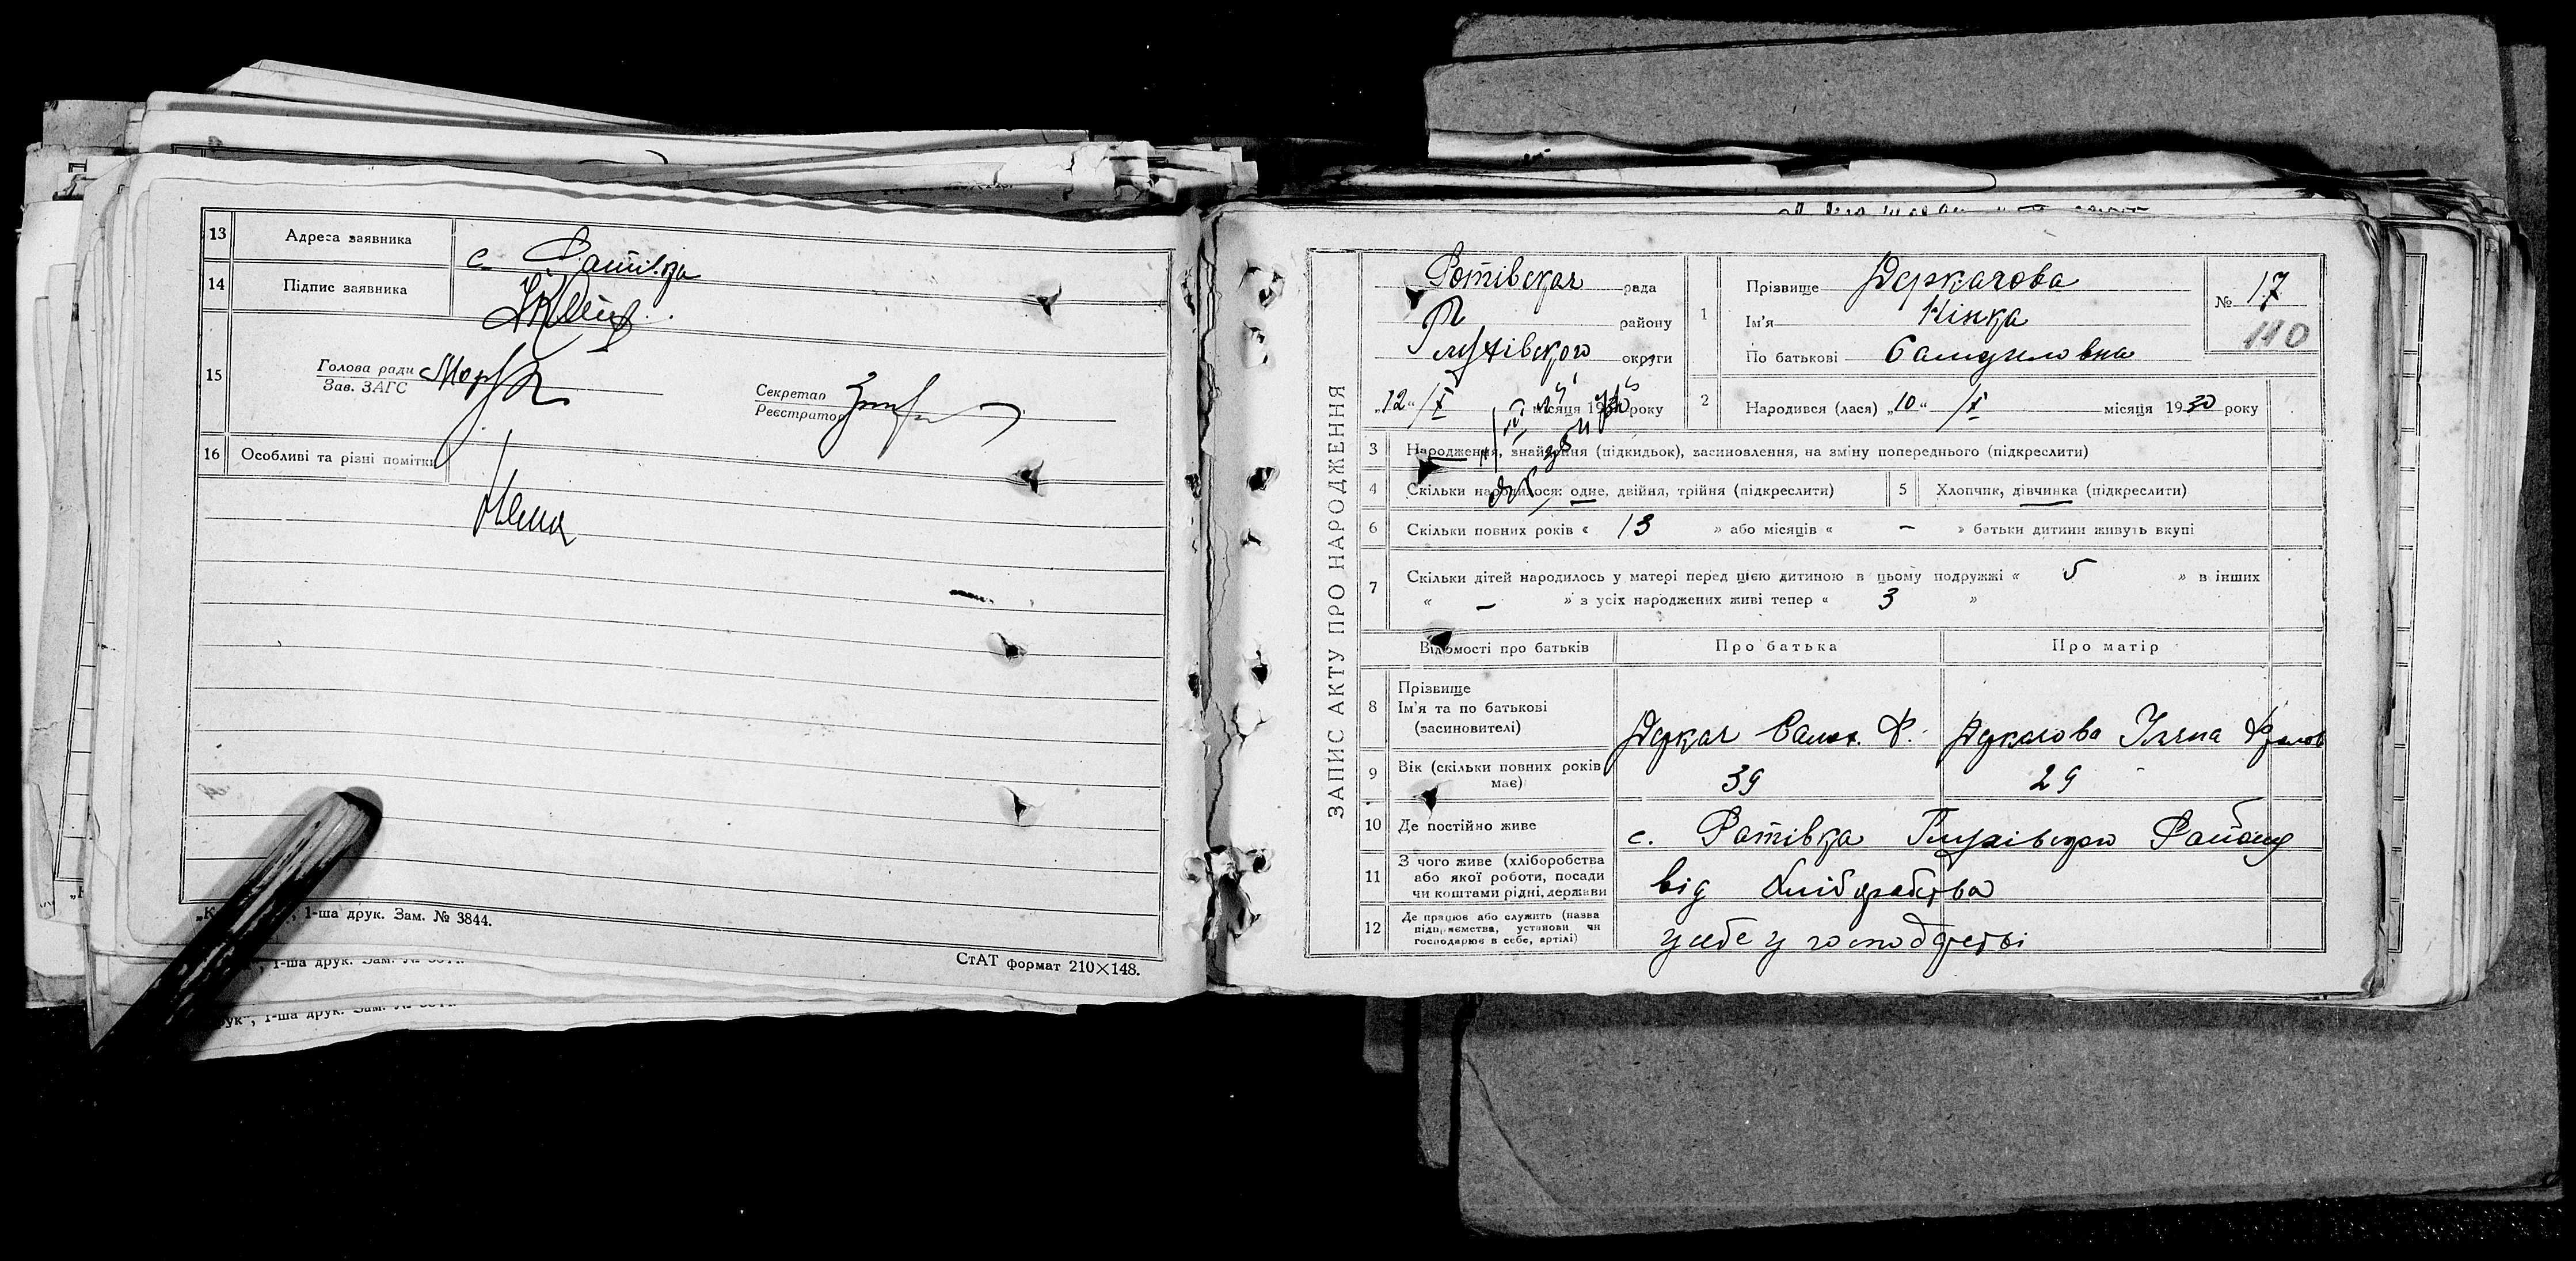 13 Адреса заявника с. Фотівка
14 Підпис заявника
15 Голова ради
Зав. ЗАГС
Секретар
Реєстратор
16 Особливі та різні помітки
Нема
1-ша друк. Зам. № 3844.
СтАТ формат 210×148.
1-ша друк. Зам. №
ук", 1-ша друк. Зам. №
ЗАПИС АКТУ ПРО НАРОДЖЕННЯ
Фотівская рада
району
Глухівского округи
„12“ /X місяця 1930 року
1 Прізвище Деркачова
Ім'я Нінка
По батькові Самуиловна
№ 17
110
2 Народився (лася) „10“ /X місяця 1930 року
3 Народження, знайдення (підкидьок), засиновлення, на зміну попереднього (підкреслити)
4 Скільки народилося: одне, двійня, трійня (підкреслити) 5 Хлопчик, дівчинка (підкреслити)
6 Скільки повних років « 13 » або місяців « – » батьки дитини живуть вкупі
7 Скільки дітей народилось у матері перед цією дитиною в цьому подружжі « 5 » в інших
« – » з усіх народжених живі тепер « 3 »
Відомості про батьків Про батька Про матір
8 Прізвище
Ім'я та по батькові
(засиновителі)
Деркач Сам. Ф. Деркачова
9 Вік (скільки повних років
має) 39 29
10 Де постійно живе с. Фотівка Глухівского Району
11 З чого живе (хліборобства
або якої роботи, посади
чи коштами рідні, держави
від Хліборобства
12 Де працює або служить (назва
підприємства, установи чи
господарює в себе, артілі)
у себе у господарстві